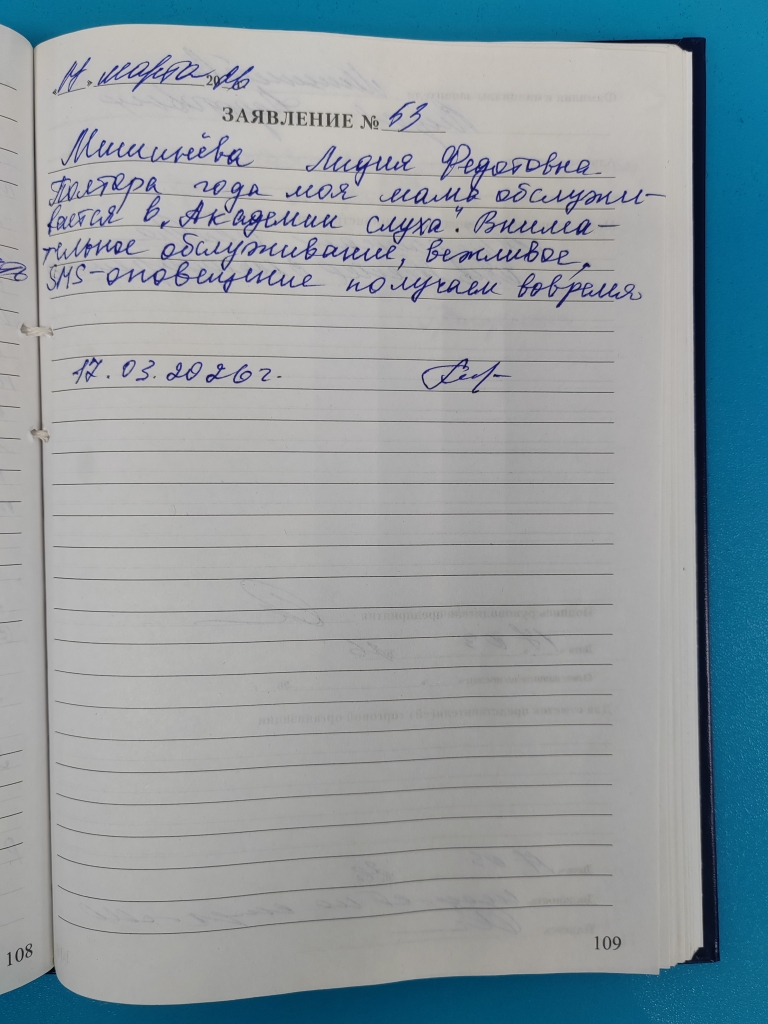 « » марта 2026
ЗАЯВЛЕНИЕ № 53
Лидия Федотовна.
Полтора года моя мама обслужи-
вается в „Академии слуха". Внима-
тельное обслуживание, вежливое,
SMS-оповещение получаем вовремя
17.03.2026г.
108
109